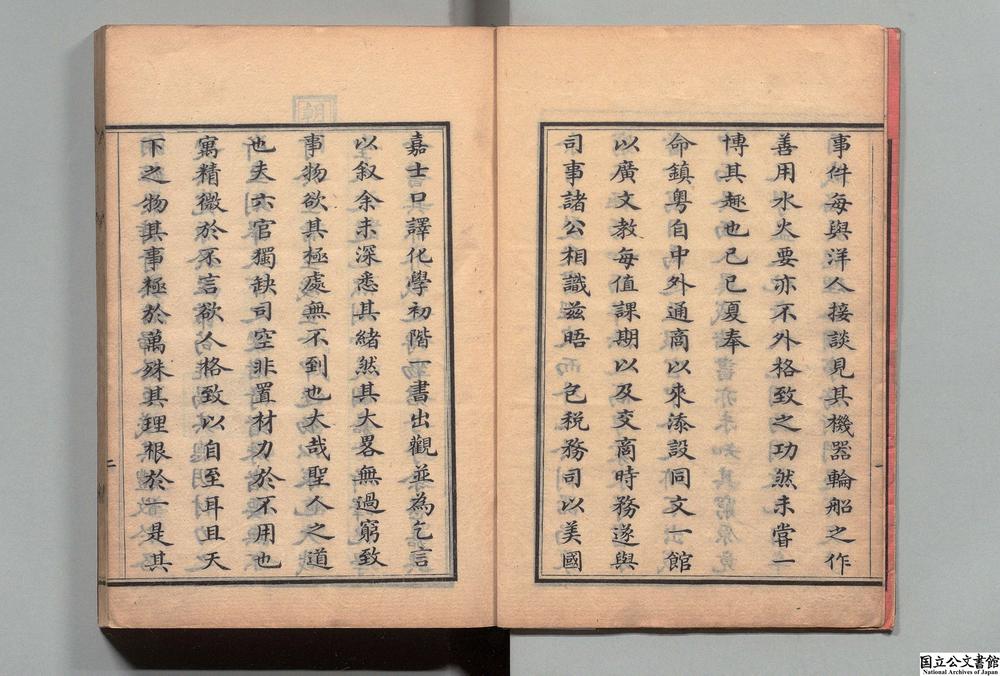 事件每與洋人接談見其機器輪船之作
善用水火要亦不外格致之功然未嘗一
博其趣也己巳夏奉
命鎮粤自中外通商以來添設同文一館
以廣文教每值課期以及交商時務遂與
司事諸公相識兹晤 包稅務司以美國
一
嘉士口譯化學初階一書出觀並為乞言
以叙余未深悉其緒然其大畧無過窮致
事物欲其極處無不到也大哉聖人之道
也夫六官獨缺司空非置材力於不用也
寓精微於不言欲人格致以自至耳且天
下之物其事極於萬殊其理根於一是其
二
国立公文書館
National Archives of Japan